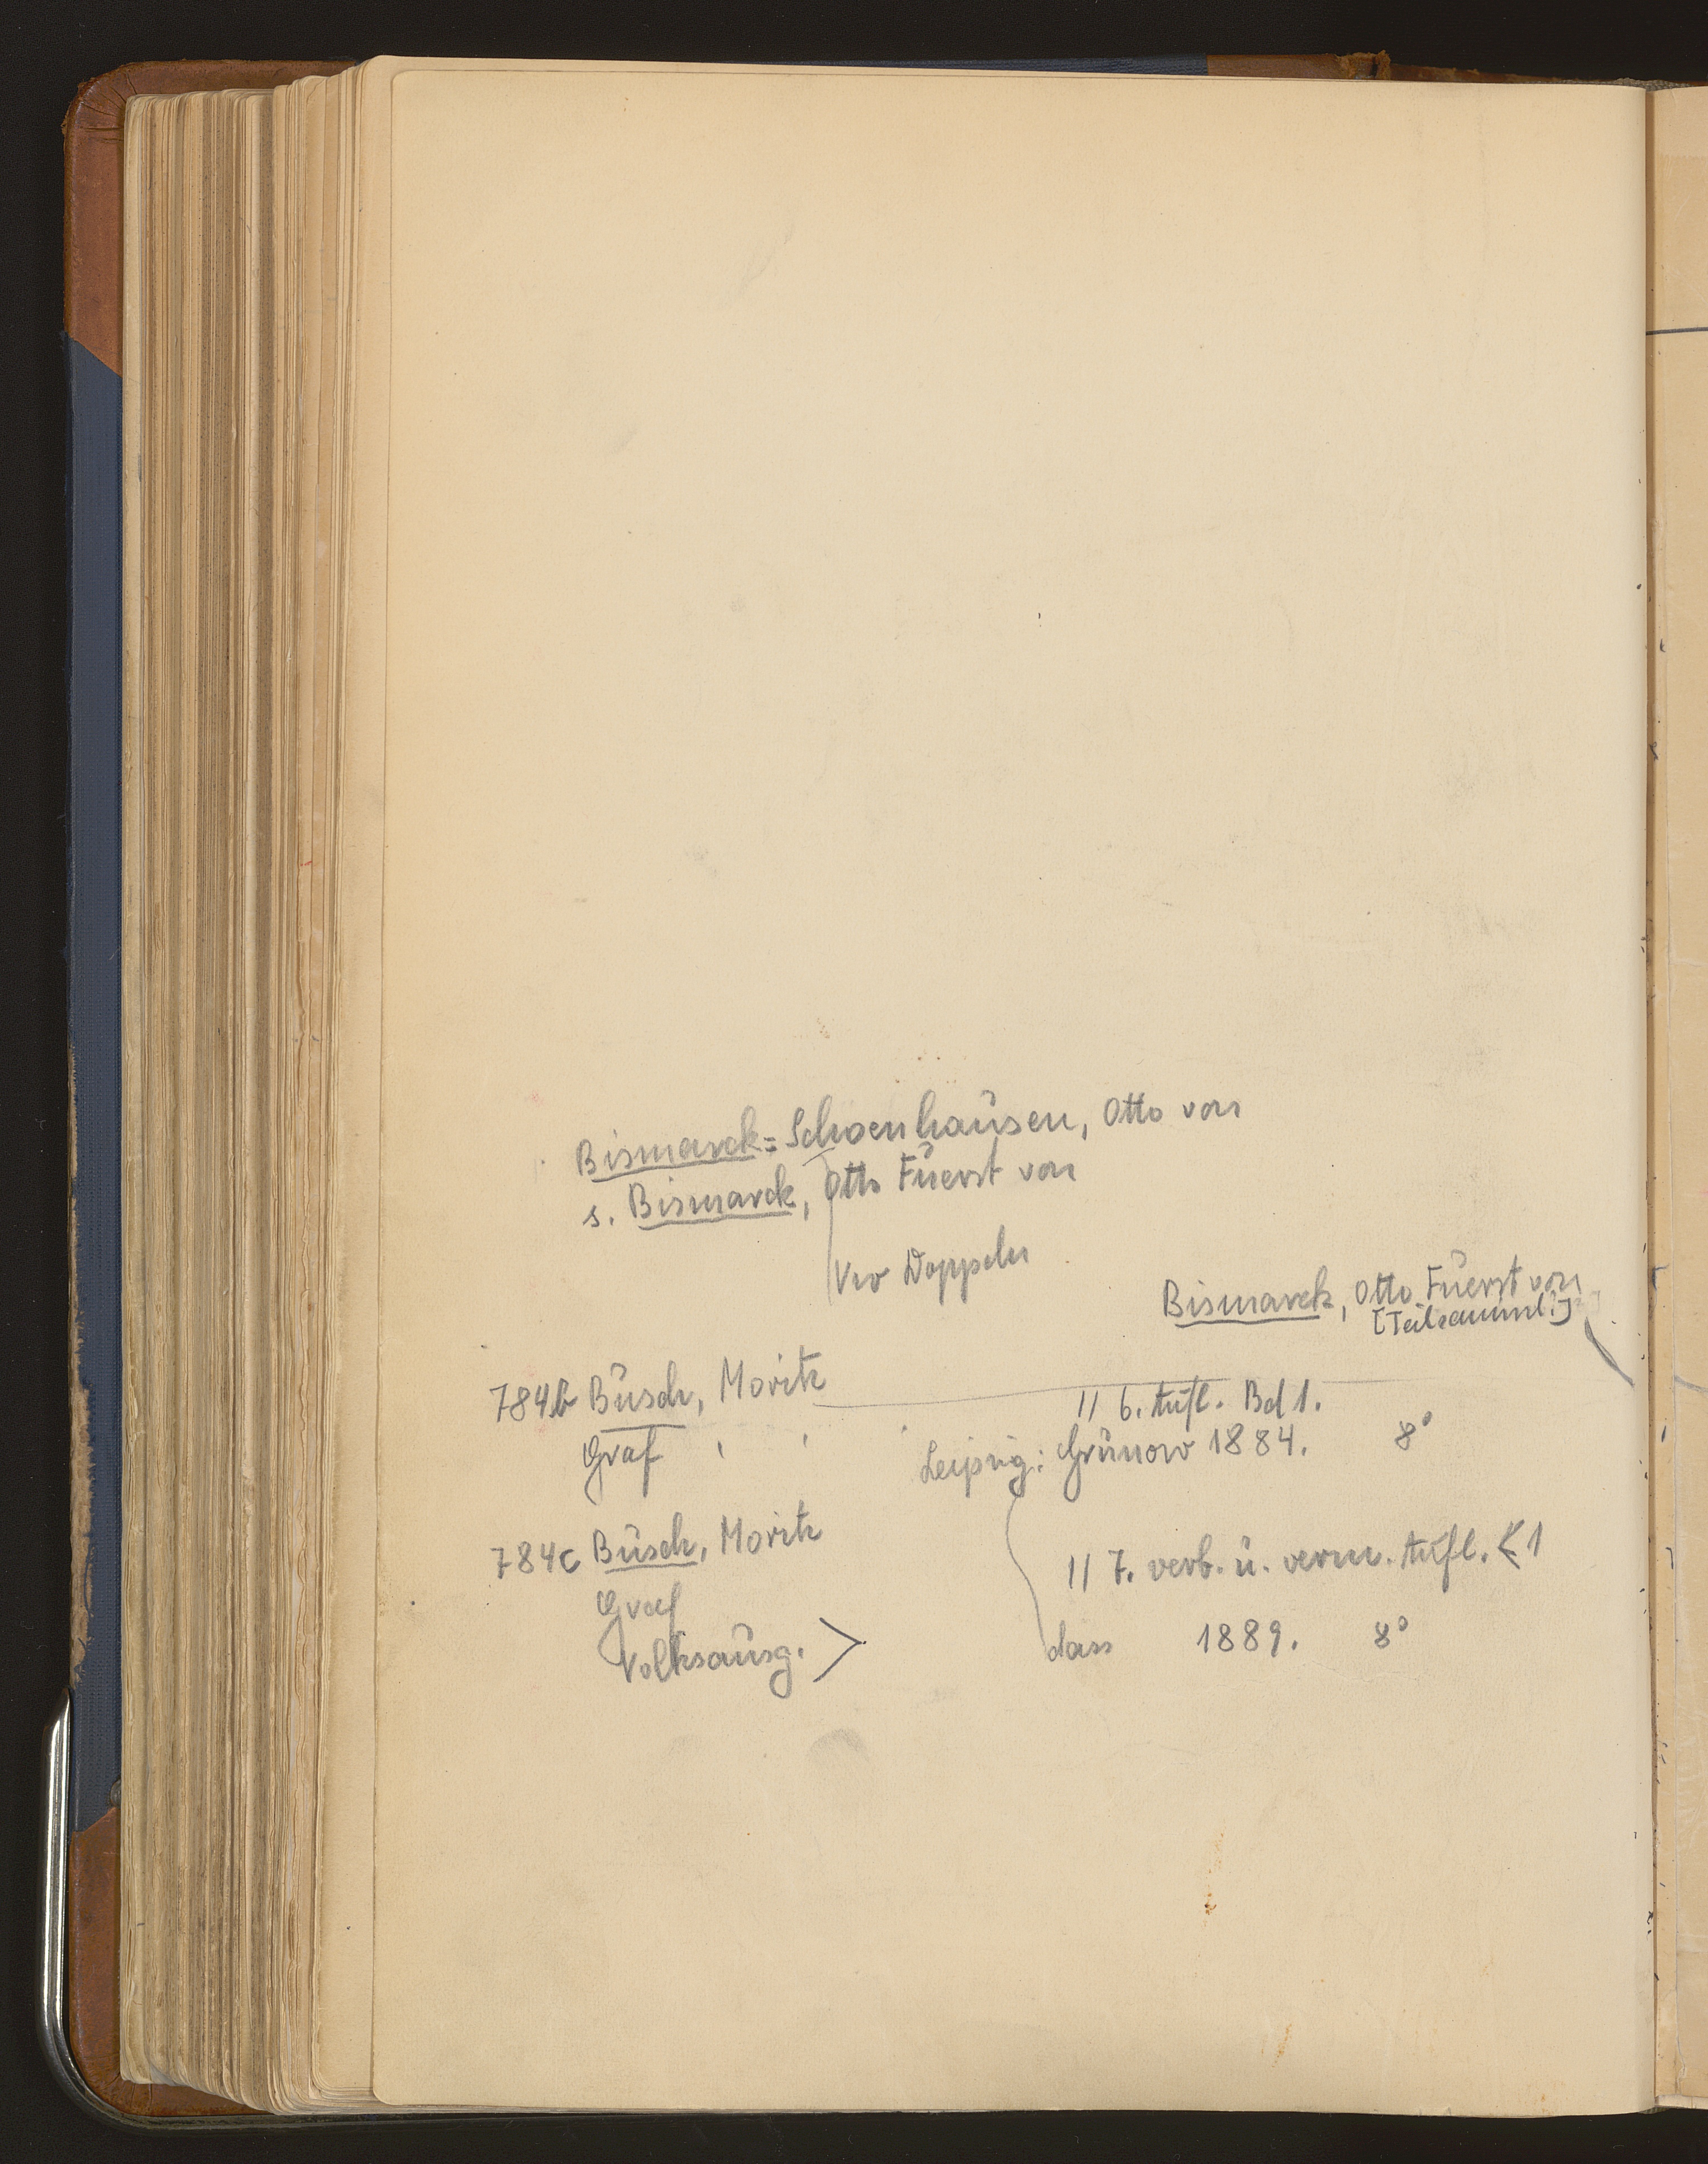 Bismarck=Schoenhausen, Otto von
s. Bismarck, Otto Fuerst von
Bismarck, Otto Fuerst von
[Teilsamml.]
784b Busch, Moritz // 6. Aufl. Bd 1.
Graf Leipzig: Grunow 1884. 8°
784c Busch, Moritz // 7. verb. u. verm. Aufl. < 1
Graf
Volksausg. > dass 1889. 8°